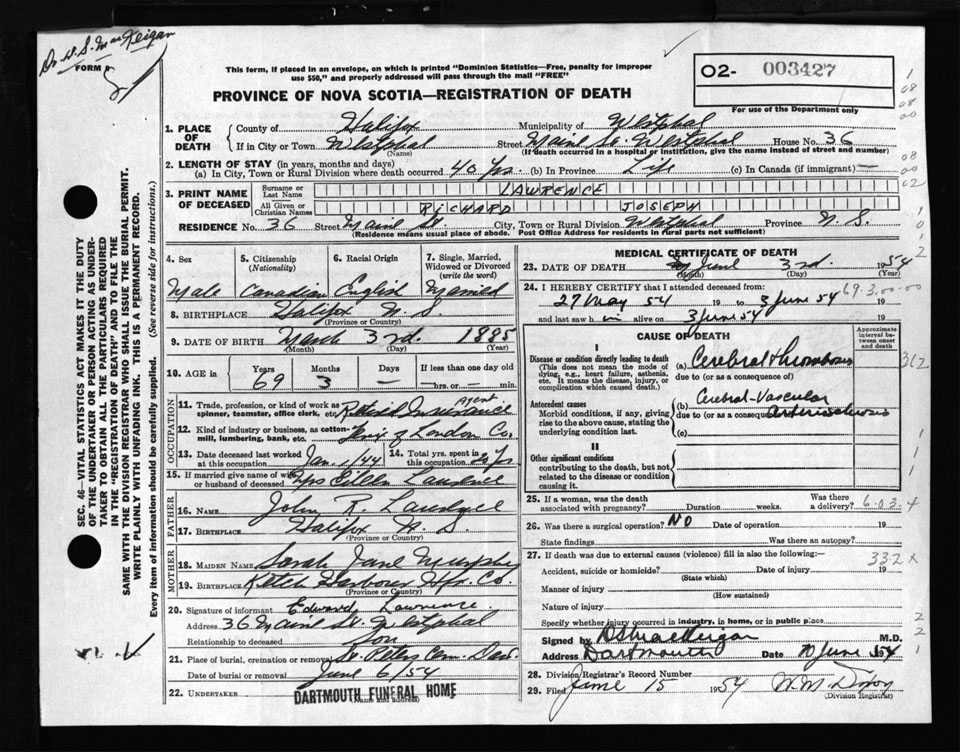 Dr. D. S. MacKeigan
FORM 6
This form, if placed in an envelope, on which is printed "Dominion Statistics—Free, penalty for improper
use $50," and properly addressed will pass through the mail "FREE"
PROVINCE OF NOVA SCOTIA—REGISTRATION OF DEATH
O2- 003427
For use of the Department only
1. PLACE OF DEATH
County of Halifax Municipality of Westphal
If in City or Town Westphal (Name) Street Main St. Westphal House No. 36
(If death occurred in a hospital or institution, give the name instead of street and number)
2. LENGTH OF STAY (in years, months and days)
(a) In City, Town or Rural Division where death occurred 40 yrs. (b) In Province Life (c) In Canada (if immigrant) —
3. PRINT NAME OF DECEASED
Surname or Last Name LAWRENCE
All Given or Christian Names RICHARD JOSEPH
RESIDENCE No. 36 Street Main St. City, Town or Rural Division Westphal Province N. S.
(Residence means usual place of abode. Post Office Address for residents in rural parts not sufficient)
4. Sex Male
5. Citizenship (Nationality) Canadian
6. Racial Origin English
7. Single, Married, Widowed or Divorced (write the word) Married
8. BIRTHPLACE Halifax N. S.
(Province or Country)
9. DATE OF BIRTH March 3rd. 1885
(Month) (Day) (Year)
10. AGE in Years 69 Months 3 Days — If less than one day
hrs. or min.
OCCUPATION
11. Trade, profession, or kind of work as spinner, teamster, office clerk, etc. Retired Insurance Agent
12. Kind of industry or business, as cotton-mill, lumbering, bank, etc. of London Co.
13. Date deceased last worked at this occupation Jan. 1/44
14. Total yrs. spent in this occupation 20 yrs
15. If married give name of wife or husband of deceased Mrs Eileen Lawrence
FATHER
16. NAME John R. Lawrence
17. BIRTHPLACE Halifax N. S.
(Province or Country)
MOTHER
18. MAIDEN NAME Sarah Jane Murphy
19. BIRTHPLACE Ketch Harbour Hfx. Co.
(Province or Country)
20. Signature of informant Edward Lawrence
Address 36 Main St. Westphal
Relationship to deceased Son
21. Place of burial, cremation or removal St. Peters Cem. Dart.
Date of burial or removal June 6/54
22. UNDERTAKER DARTMOUTH FUNERAL HOME
(Name and address)
MEDICAL CERTIFICATE OF DEATH
23. DATE OF DEATH June 3rd. 1954
(Month) (Day) (Year)
24. I HEREBY CERTIFY that I attended deceased from:
27 May 54 19 to 3 June 54 19
and last saw h im alive on 3 June 54 19
69.3.00-00
CAUSE OF DEATH
Approximate interval between onset and death
I
Disease or condition directly leading to death
(This does not mean the mode of dying, e.g., heart failure, asthenia, etc. It means the disease, injury, or complication which caused death.)
(a) Cerebral thrombosis
due to (or as a consequence of)
Antecedent causes
Morbid conditions, if any, giving rise to the above cause, stating the underlying condition last.
(b) Cerebral-Vascular
due to (or as a consequence of) arteriosclerosis
(c)
II
Other significant conditions
contributing to the death, but not related to the disease or condition causing it.
25. If a woman, was the death associated with pregnancy? Duration weeks. Was there a delivery?
6.03.4
26. Was there a surgical operation? NO Date of operation 19
State findings Was there an autopsy?
27. If death was due to external causes (violence) fill in also the following:—
332x
Accident, suicide or homicide? Date of injury 19
(State which)
Manner of injury
(How sustained)
Nature of injury
Specify whether injury occurred in industry, in home, or in public place
Signed by D S MacKeigan M.D.
Address Dartmouth Date 10 June 1954
28. Division Registrar's Record Number
29. Filed June 15 1954 W. M. Dixon
(Division Registrar)
SEC. 46—VITAL STATISTICS ACT MAKES IT THE DUTY
OF THE UNDERTAKER OR PERSON ACTING AS UNDER-
TAKER TO OBTAIN ALL THE PARTICULARS REQUIRED
IN THE "REGISTRATION OF DEATH" AND TO FILE THE
SAME WITH THE DIVISION REGISTRAR WHO SHALL ISSUE THE BURIAL PERMIT.
WRITE PLAINLY WITH UNFADING INK. THIS IS A PERMANENT RECORD.
Every item of information should be carefully supplied. (See reverse side for instructions.)